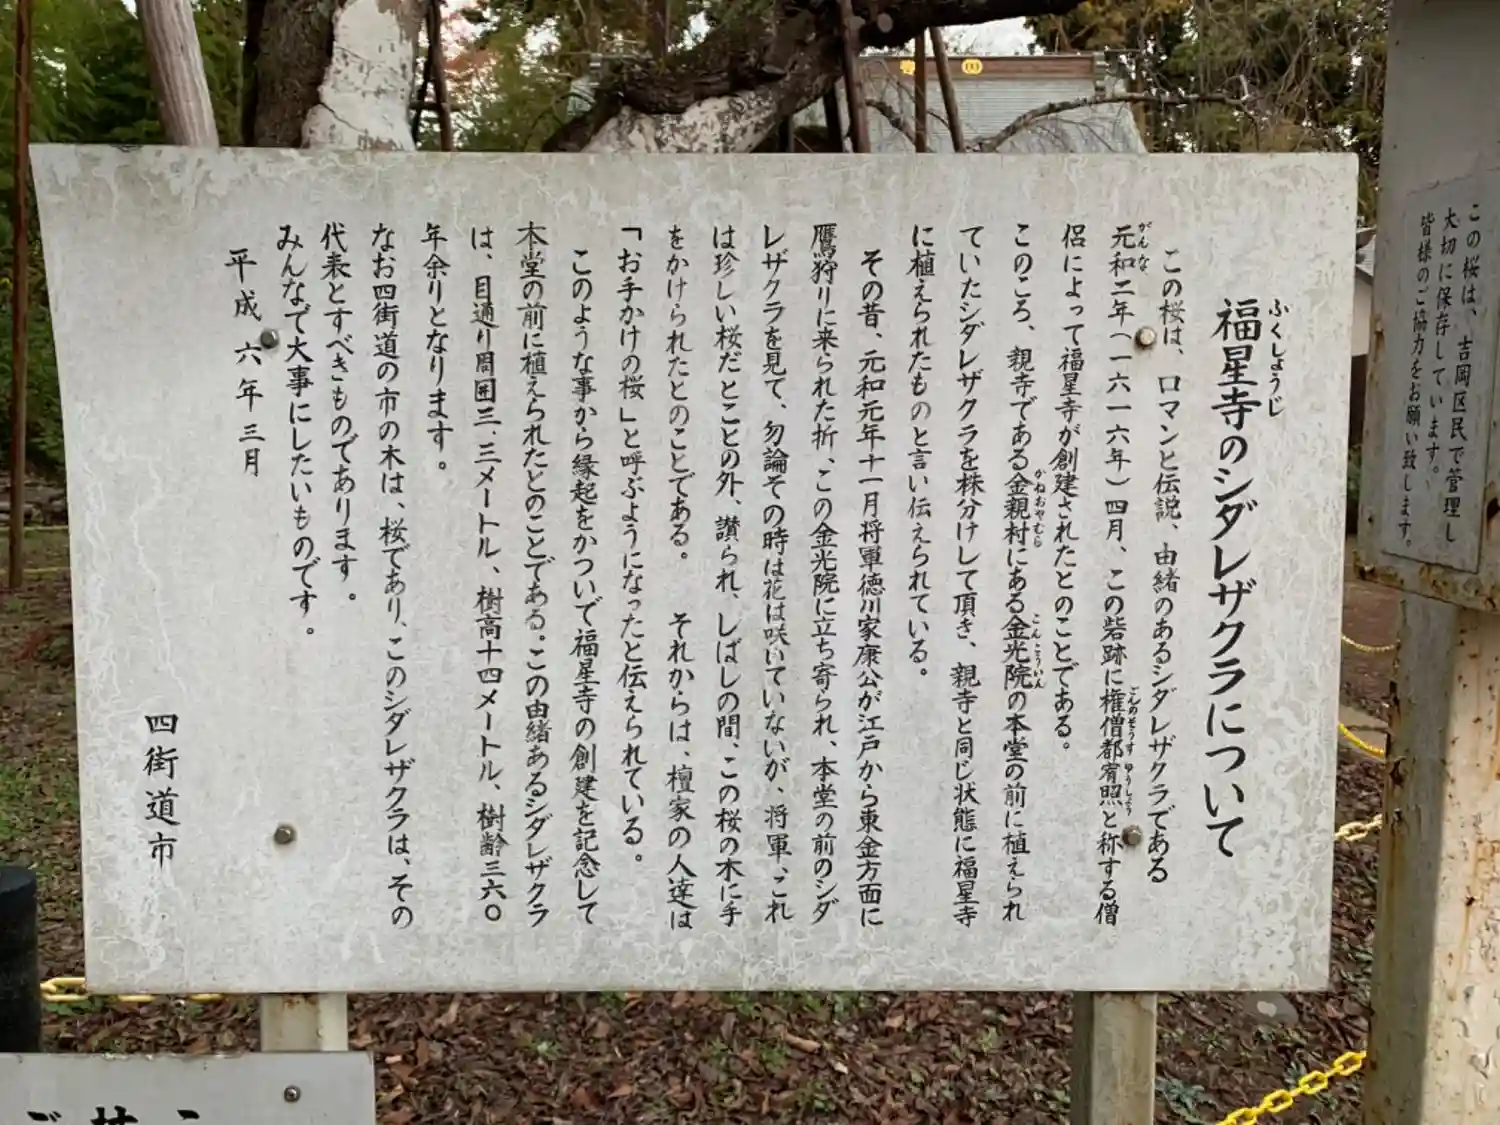 福星寺のシダレザクラについて
ふくしょうじ
この桜は、ロマンと伝説、由緒のあるシダレザクラである
元和二年(一六一六年)四月、この砦跡に権僧都宥照と称する僧
がんな
ごんのそうず ゆうしょう
侶によって福星寺が創建されたとのことである。
このころ、親寺である金親村にある金光院の本堂の前に植えられ
かねおやむら
こんこういん
ていたシダレザクラを株分けして頂き、親寺と同じ状態に福星寺
に植えられたものと言い伝えられている。
その昔、元和元年十一月将軍徳川家康公が江戸から東金方面に
鷹狩りに来られた折、この金光院に立ち寄られ、本堂の前のシダ
レザクラを見て、勿論その時は花は咲いていないが、将軍、これ
は珍しい桜だとことの外、讃られ、しばしの間、この桜の木に手
をかけられたとのことである。 それからは、檀家の人達は
「お手かけの桜」と呼ぶようになったと伝えられている。
このような事から縁起をかついで福星寺の創建を記念して
本堂の前に植えられたとのことである。この由緒あるシダレザクラ
は、目通り周囲三.三メートル、樹高十四メートル、樹齢三六〇
年余りとなります。
なお四街道の市の木は、桜であり、このシダレザクラは、その
代表とすべきものであります。
みんなで大事にしたいものです。
平成六年三月
四街道市
この桜は、吉岡区民で管理し
大切に保存しています。
皆様のご協力をお願い致します。